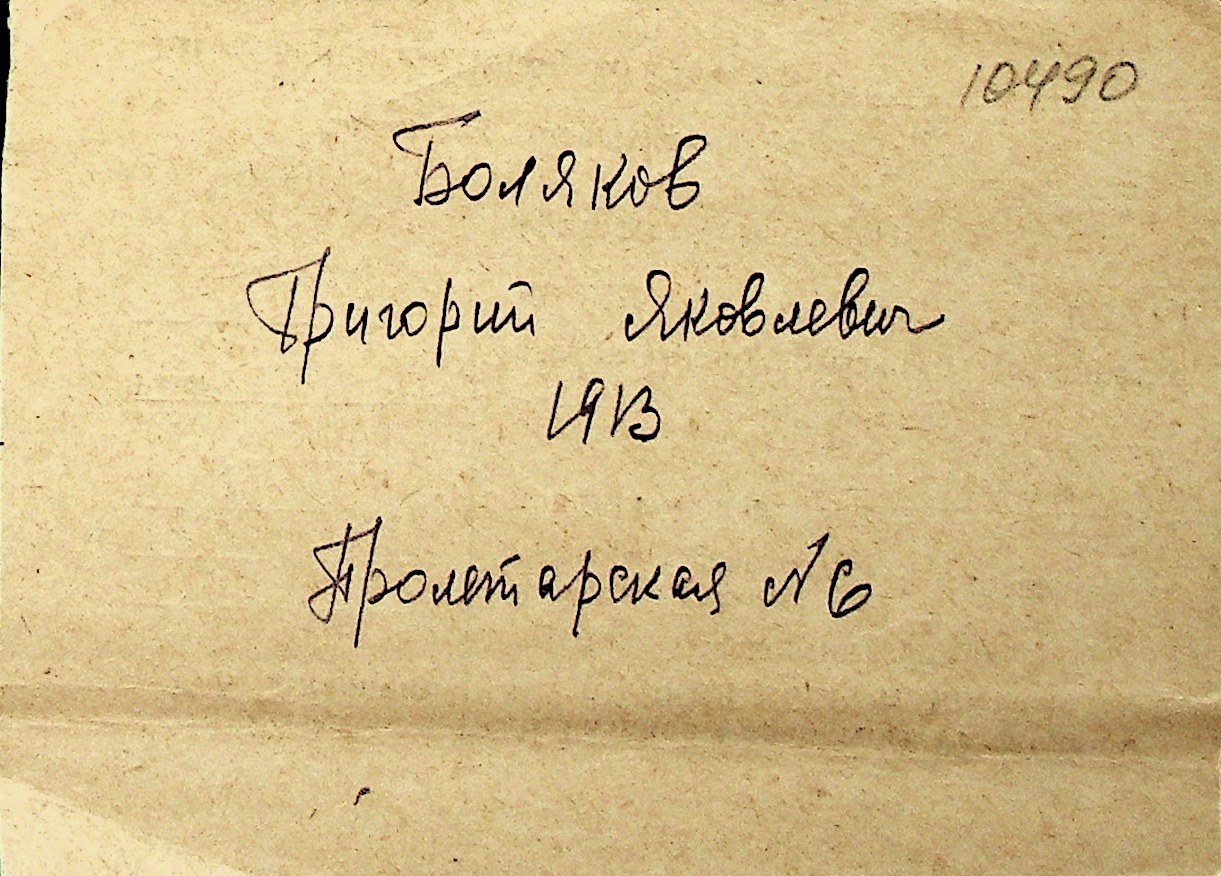 10490
Боляков
Григорий Яковлевич
1913
Пролетарская N 6